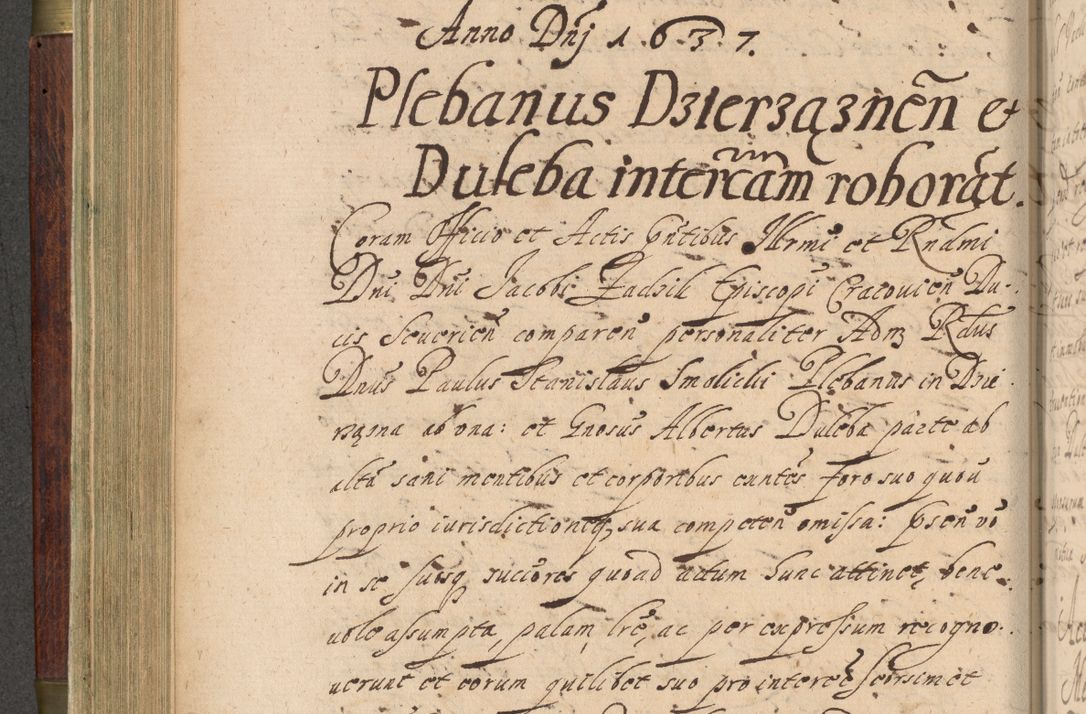 Anno Dnj 1.6.3.7.
Plebanus Dzierząznēn et
Duleba intercām roborāt.
Coram Officio et Actis pntibus Illrmi et Rndmi
Dni Dni Jacobi Zadzik Episcopi Cracovien Du-
cis Severien comparen personaliter Admz Rdus
Dnus Paulus Stanislaus Smolicki Plebanus in Dzie
rzązna ab ona: et Gnosus Albertus Duleba parte ab
altā sani mentibus et corporibus euntēs foro suo quou
proprio iurisdictioneq, sua competen omissa: psen vo
in se suosq succores quoad actum hunc attinet, bene-
vole assumpta, palam lrē, ac per expressum recogno-
verunt et eorum quilibet suo pro interet seorsim et